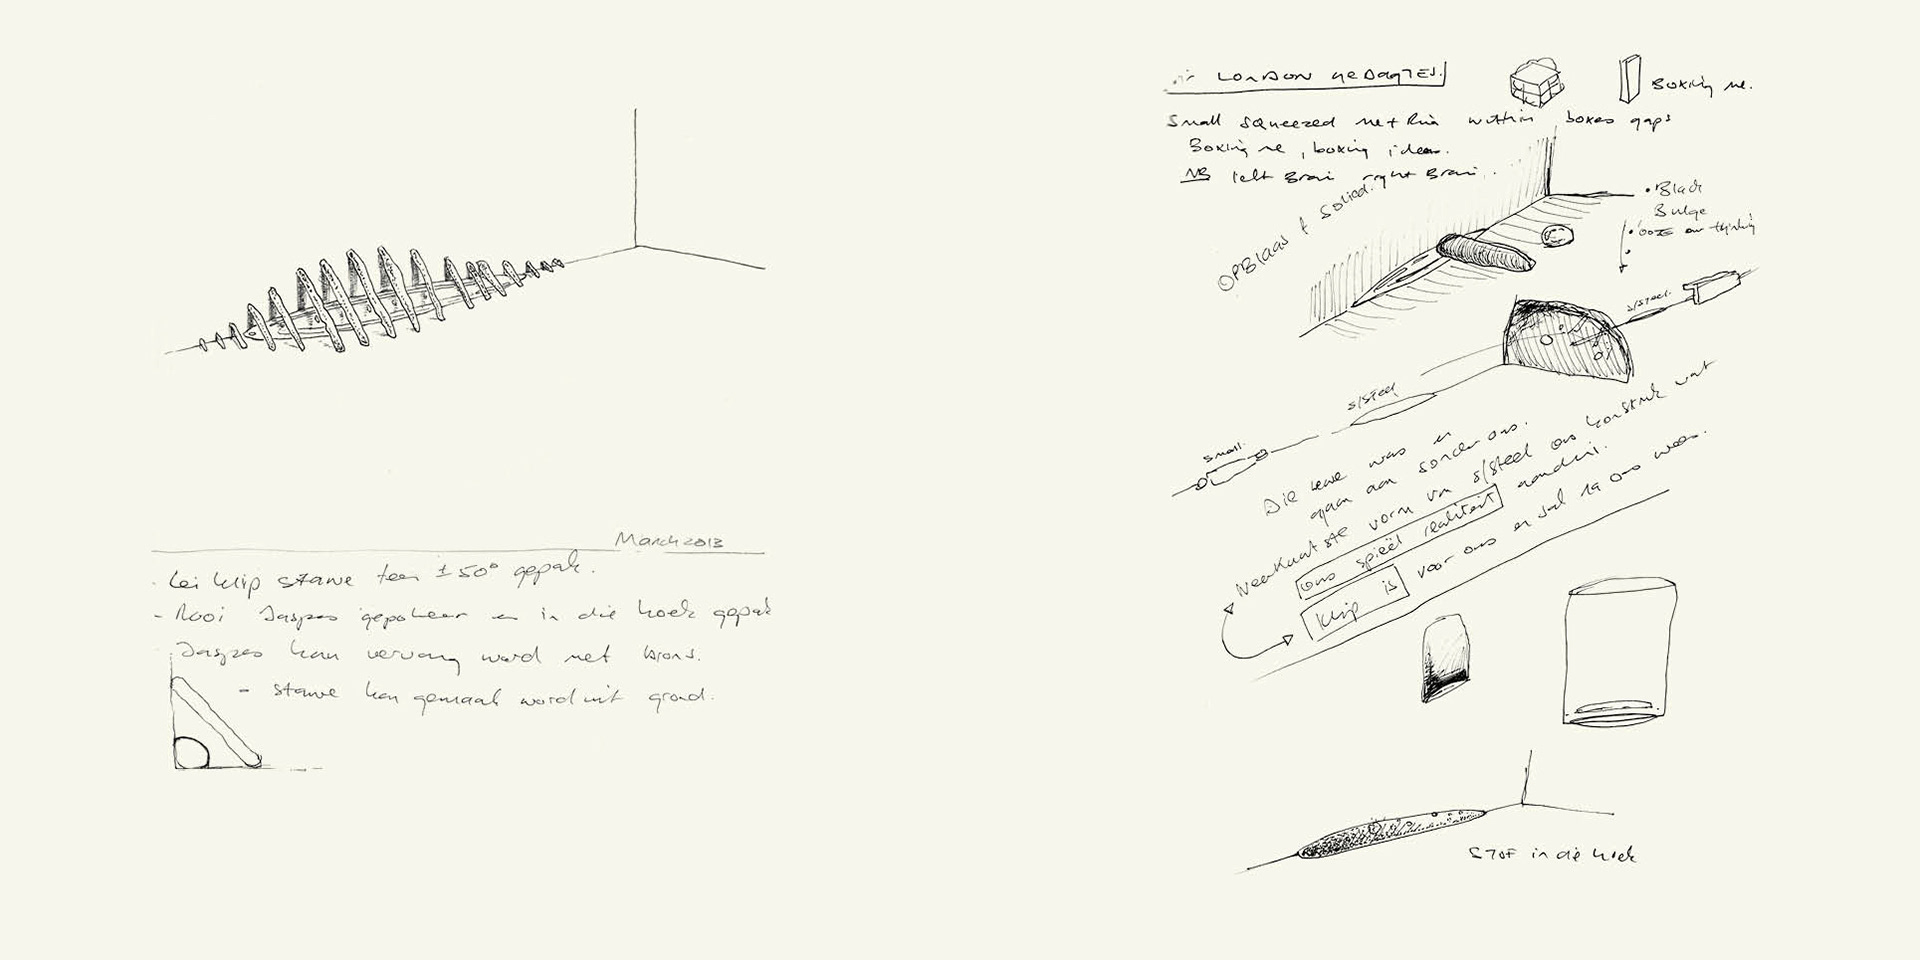 March 2013
Lei klip stawe teen ± 50° gepak.
- Rooi Jaspes gepoleer en in die hoek gepak
Jaspes kan vervang word met brons.
- stawe kan gemaak word uit grond.
LONDON GEDAGTES.
Boxing me.
Small squeezed within boxes gaps
Boxing me, boxing ideas.
NB left Brain right Brain.
OPBlaas + Solied.
• Black
Bulge
• ooze
s/steel.
s/steel
small.
Die lewe was en
gaan aan sonder ons.
vorm van s/steel ons konstruk wat
ons spieël realiteit
Klip is voor ons en sal na ons wees.
STOF in die hoek